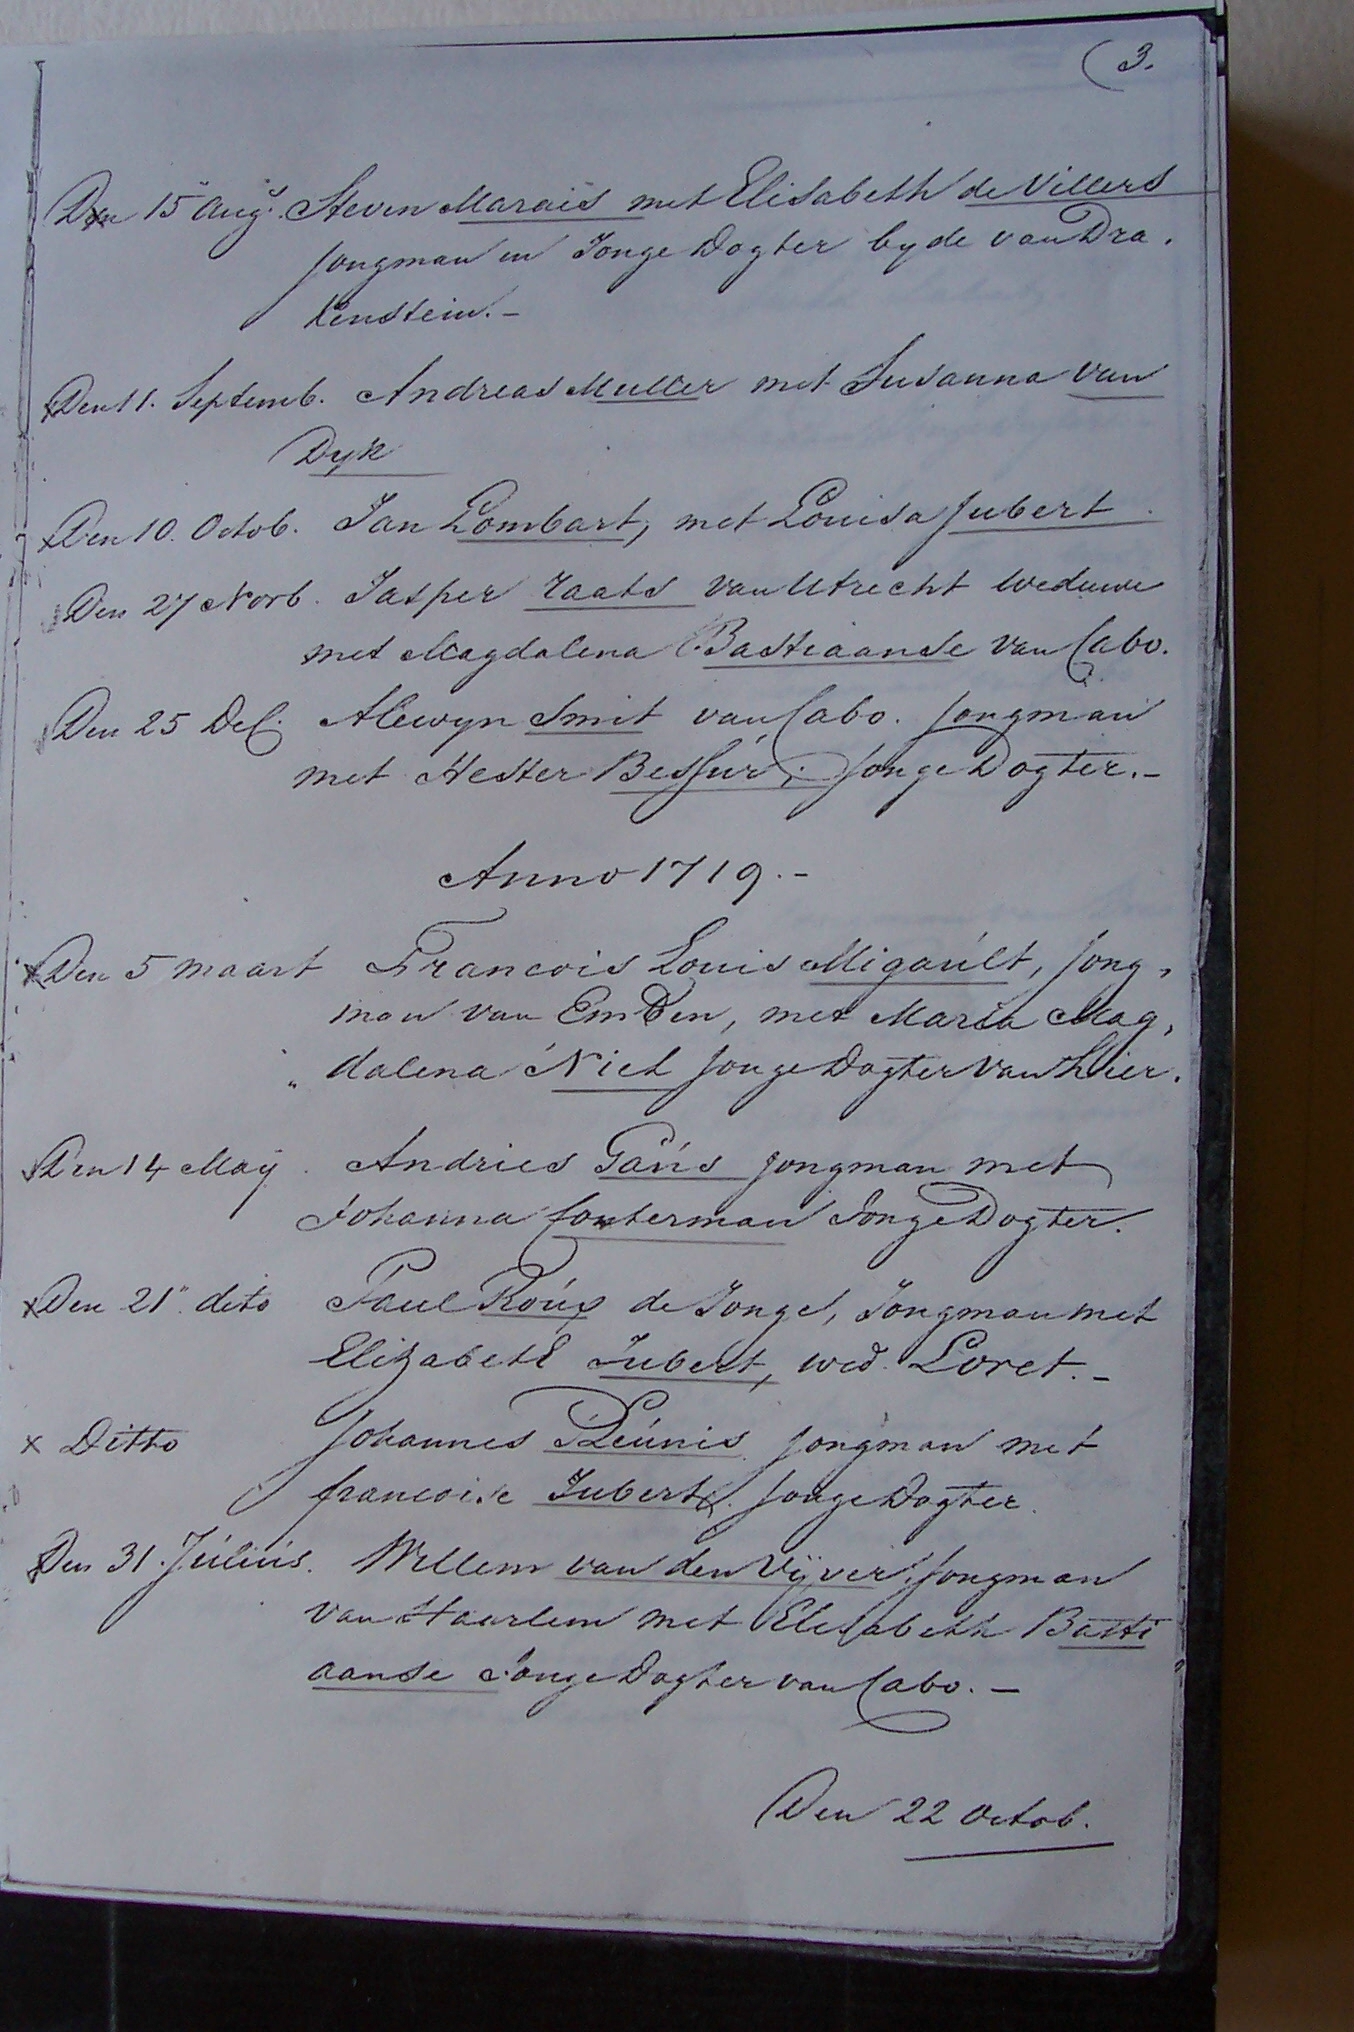 (3.
Den 15 Augs. Steven Marais met Elisabeth de Villers
Jongman en Jonge Dogter byde van Dra.
kenstein.-
Den 11. Septemb. Andreas Muller met Susanna van
Dyk
Den 10. Octob. Jan Lombart, met Louisa Jubert.
Den 27 Novb. Jasper raats van Utrecht weduwe
met Magdalena Bastiaanse van Cabo.
Den 25 Dec. Alewyn Smit van Cabo. Jongman
met Hester Bessúr, Jonge Dogter.-
Anno 1719.-
Den 5 maart Francois Louis Migaúlt, Jong,
man van Emden, met Maria Mag,
dalena Niel Jonge Dogter van hier.
Den 14 Maÿ. Andries Gaús Jongman met
Johanna Conterman Jonge Dogter.
Den 21" dito Paul Roúx de Jonge, Jongman met
Elizabeth Jubert, wed. Loret.-
x Ditto Johannes Pleúnis Jongman met
francoise Jubert. Jonge Dogter.
Den 31. Júliús. Willem van den Vÿver, Jongman
van Haarlem met Elisabeth Basti
aanse Jonge Dogter van Cabo. -
Den 22 Octob.